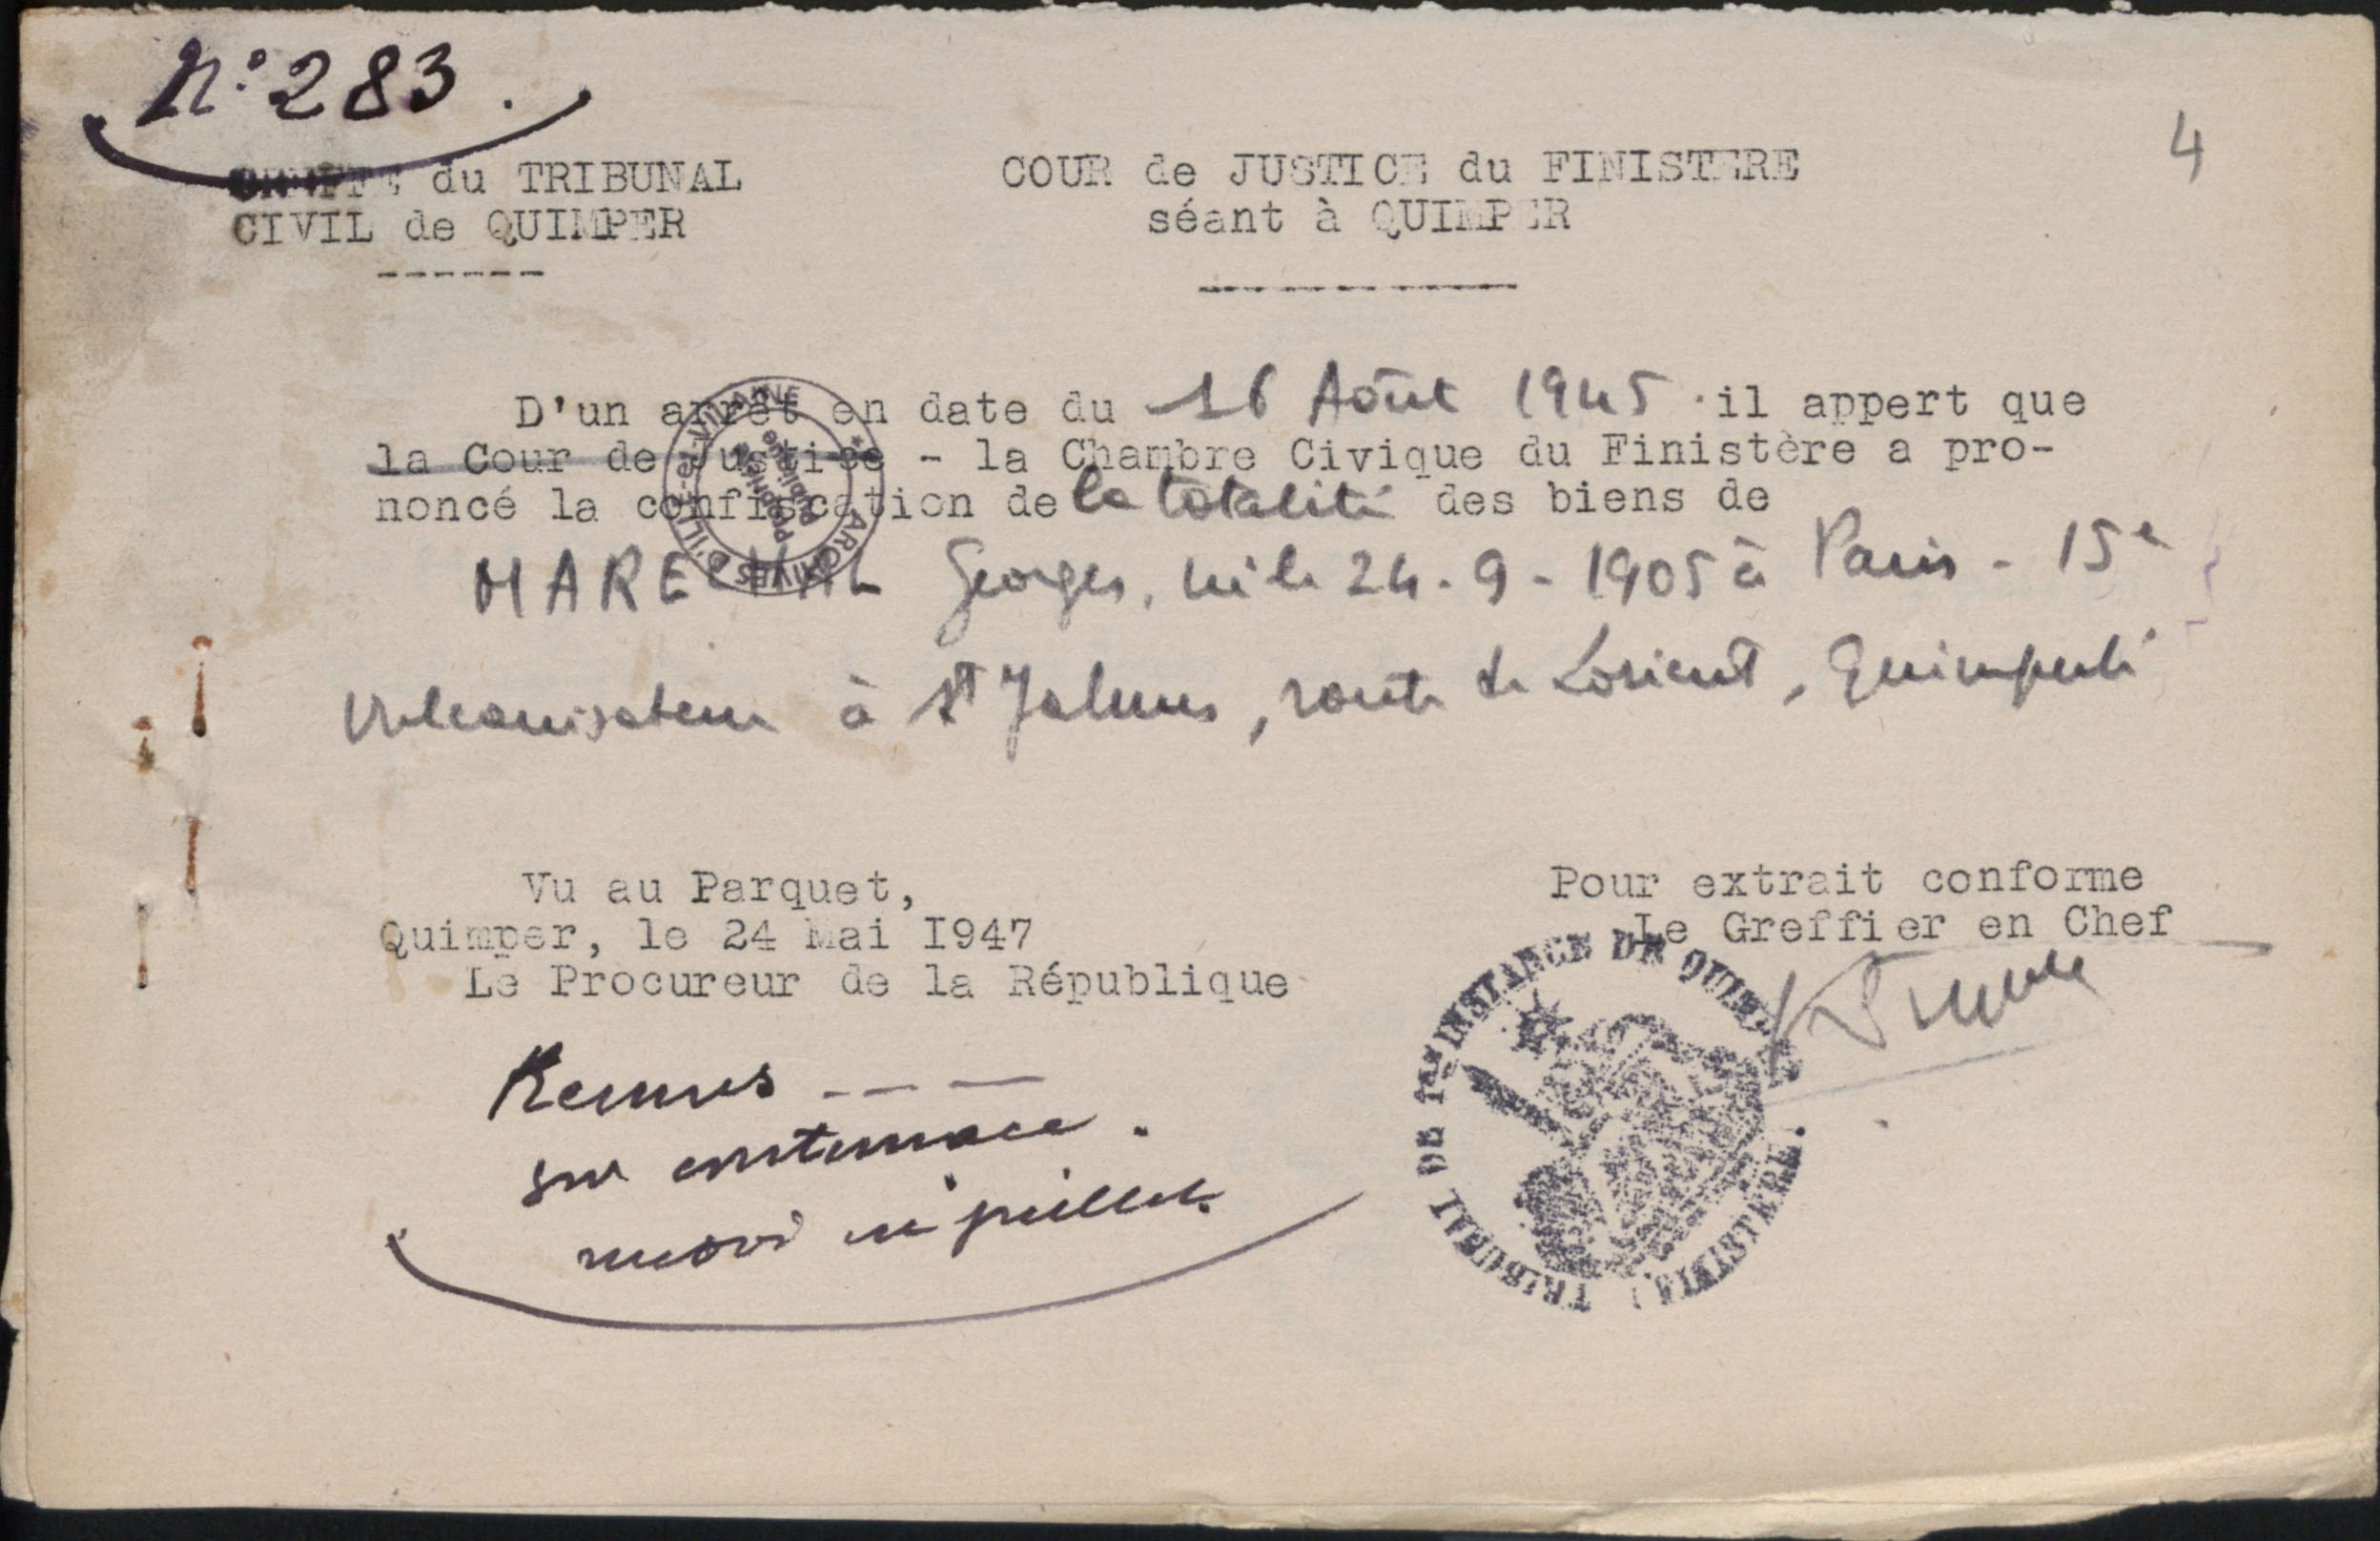 N° 283.
4
GREFFE du TRIBUNAL
CIVIL de QUIMPER
------
COUR de JUSTICE du FINISTERE
séant à QUIMPER
D'un arrêt en date du 16 Août 1945 il appert que
la Cour de Justice - la Chambre Civique du Finistère a pro-
noncé la confiscation de la totalité des biens de
MARECHAL Georges, né le 24-9-1905 à Paris - 15e
Vulcanisateur à St Jalmes, route de Lorient, Quimperlé
ARCHIVES D'ILLE-et-VILAINE
Propriété
Publique
Vu au Parquet,
Quimper, le 24 Mai I947
Le Procureur de la République
Pour extrait conforme
Le Greffier en Chef
TRIBUNAL DE 1ERE INSTANCE DE QUIMPER (FINISTERE)
Rennes - - -
sur contumace.
en juillet.